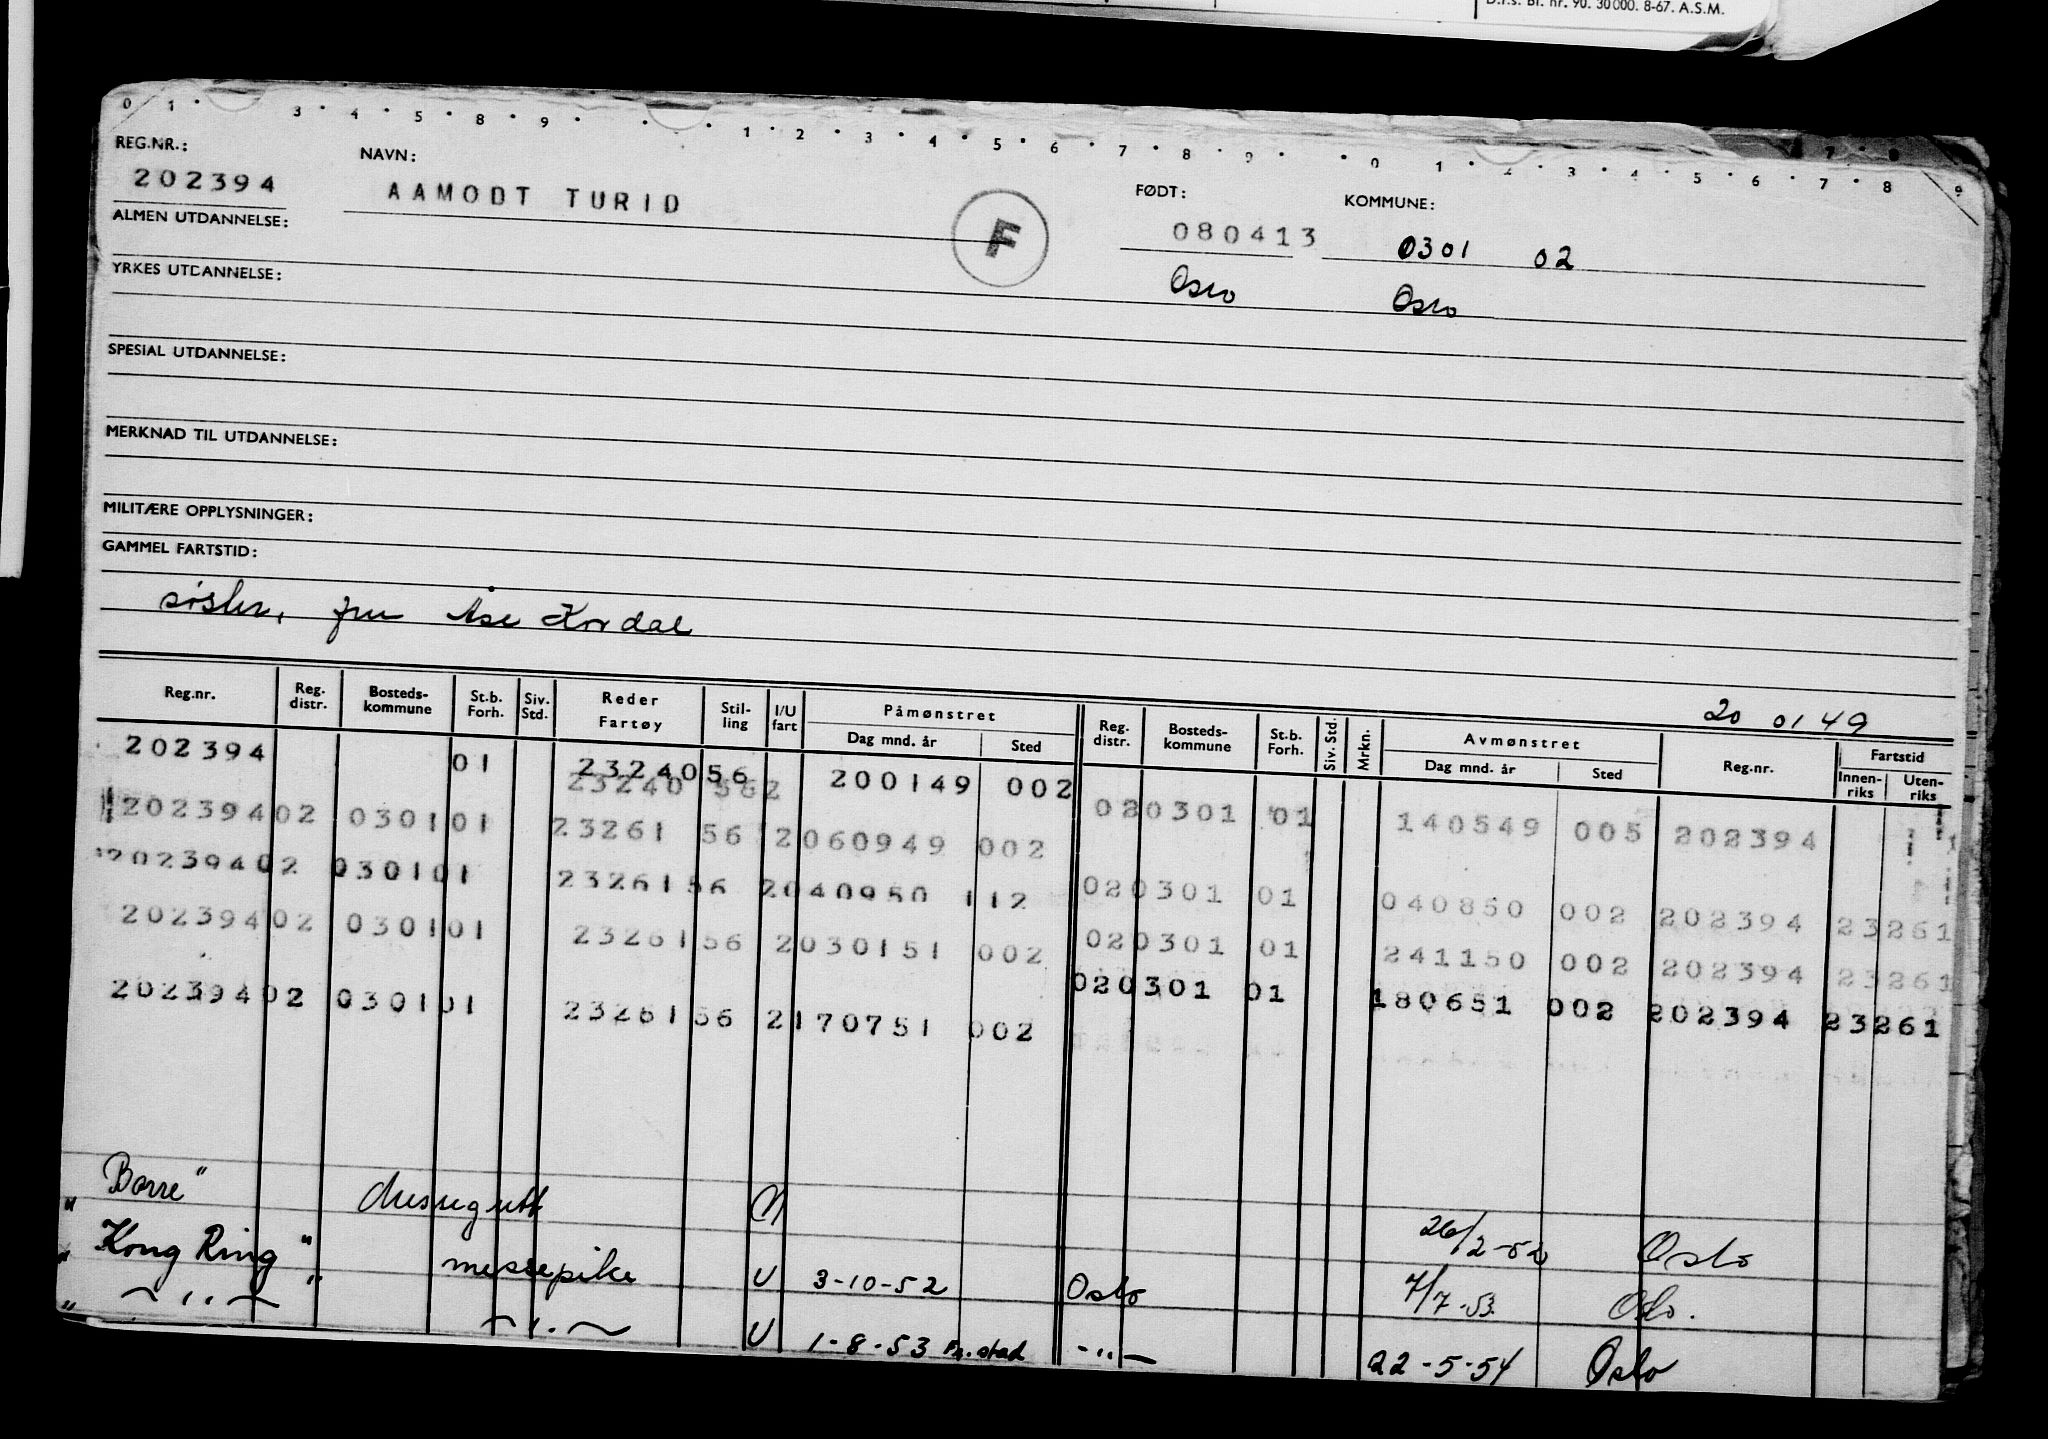 D.f.s. Bl. nr. 90. 30 000. 8-67. A.S.M.
0 1 · 3 · 4 · 5 · 8 · 9 · · · 1 · 2 · 3 · 4 · 5 · 6 · 7 · 8 · 9 · · 0 1 · 2 · 3 · 4 · 5 · 6 · 7 · 8 9
REG.NR.: NAVN: FØDT: KOMMUNE:
202394 AAMODT TURID F 080413 0301 02
ALMEN UTDANNELSE: Oslo Oslo
YRKES UTDANNELSE:
SPESIAL UTDANNELSE:
MERKNAD TIL UTDANNELSE:
MILITÆRE OPPLYSNINGER:
GAMMEL FARTSTID:
søster, fru Åse Kordal
20 01 49
Reg.nr. Reg. distr. Bosteds-kommune St.b. Forh. Siv. Std. Reder Fartøy Stil-ling I/U fart Påmønstret Dag mnd. år Sted Reg. distr. Bosteds-kommune St.b. Forh. Siv. Std. Mrkn. Avmønstret Dag mnd. år Sted Reg.nr. Fartstid Innen-riks Uten-riks
202394 01 23240 56 200149 002
23240 56 2 020301 01 140549 005 202394
202394 02 0301 01 23261 56 2 060949 002
020301 01 040850 002 202394 23261
202394 02 0301 01 23261 56 2 040950 112
020301 01 241150 002 202394 23261
202394 02 0301 01 23261 56 2 030151 002
020301 01 180651 002 202394 23261
202394 02 0301 01 23261 56 2 170751 002
"Borre" Messegutt 26/2-52 Oslo
"Kong Ring" messepike U 3-10-52 Oslo 7/7-53. Oslo.
" — " — " — " — U 1-8-53 Fr.stad — " — 22-5-54 Oslo